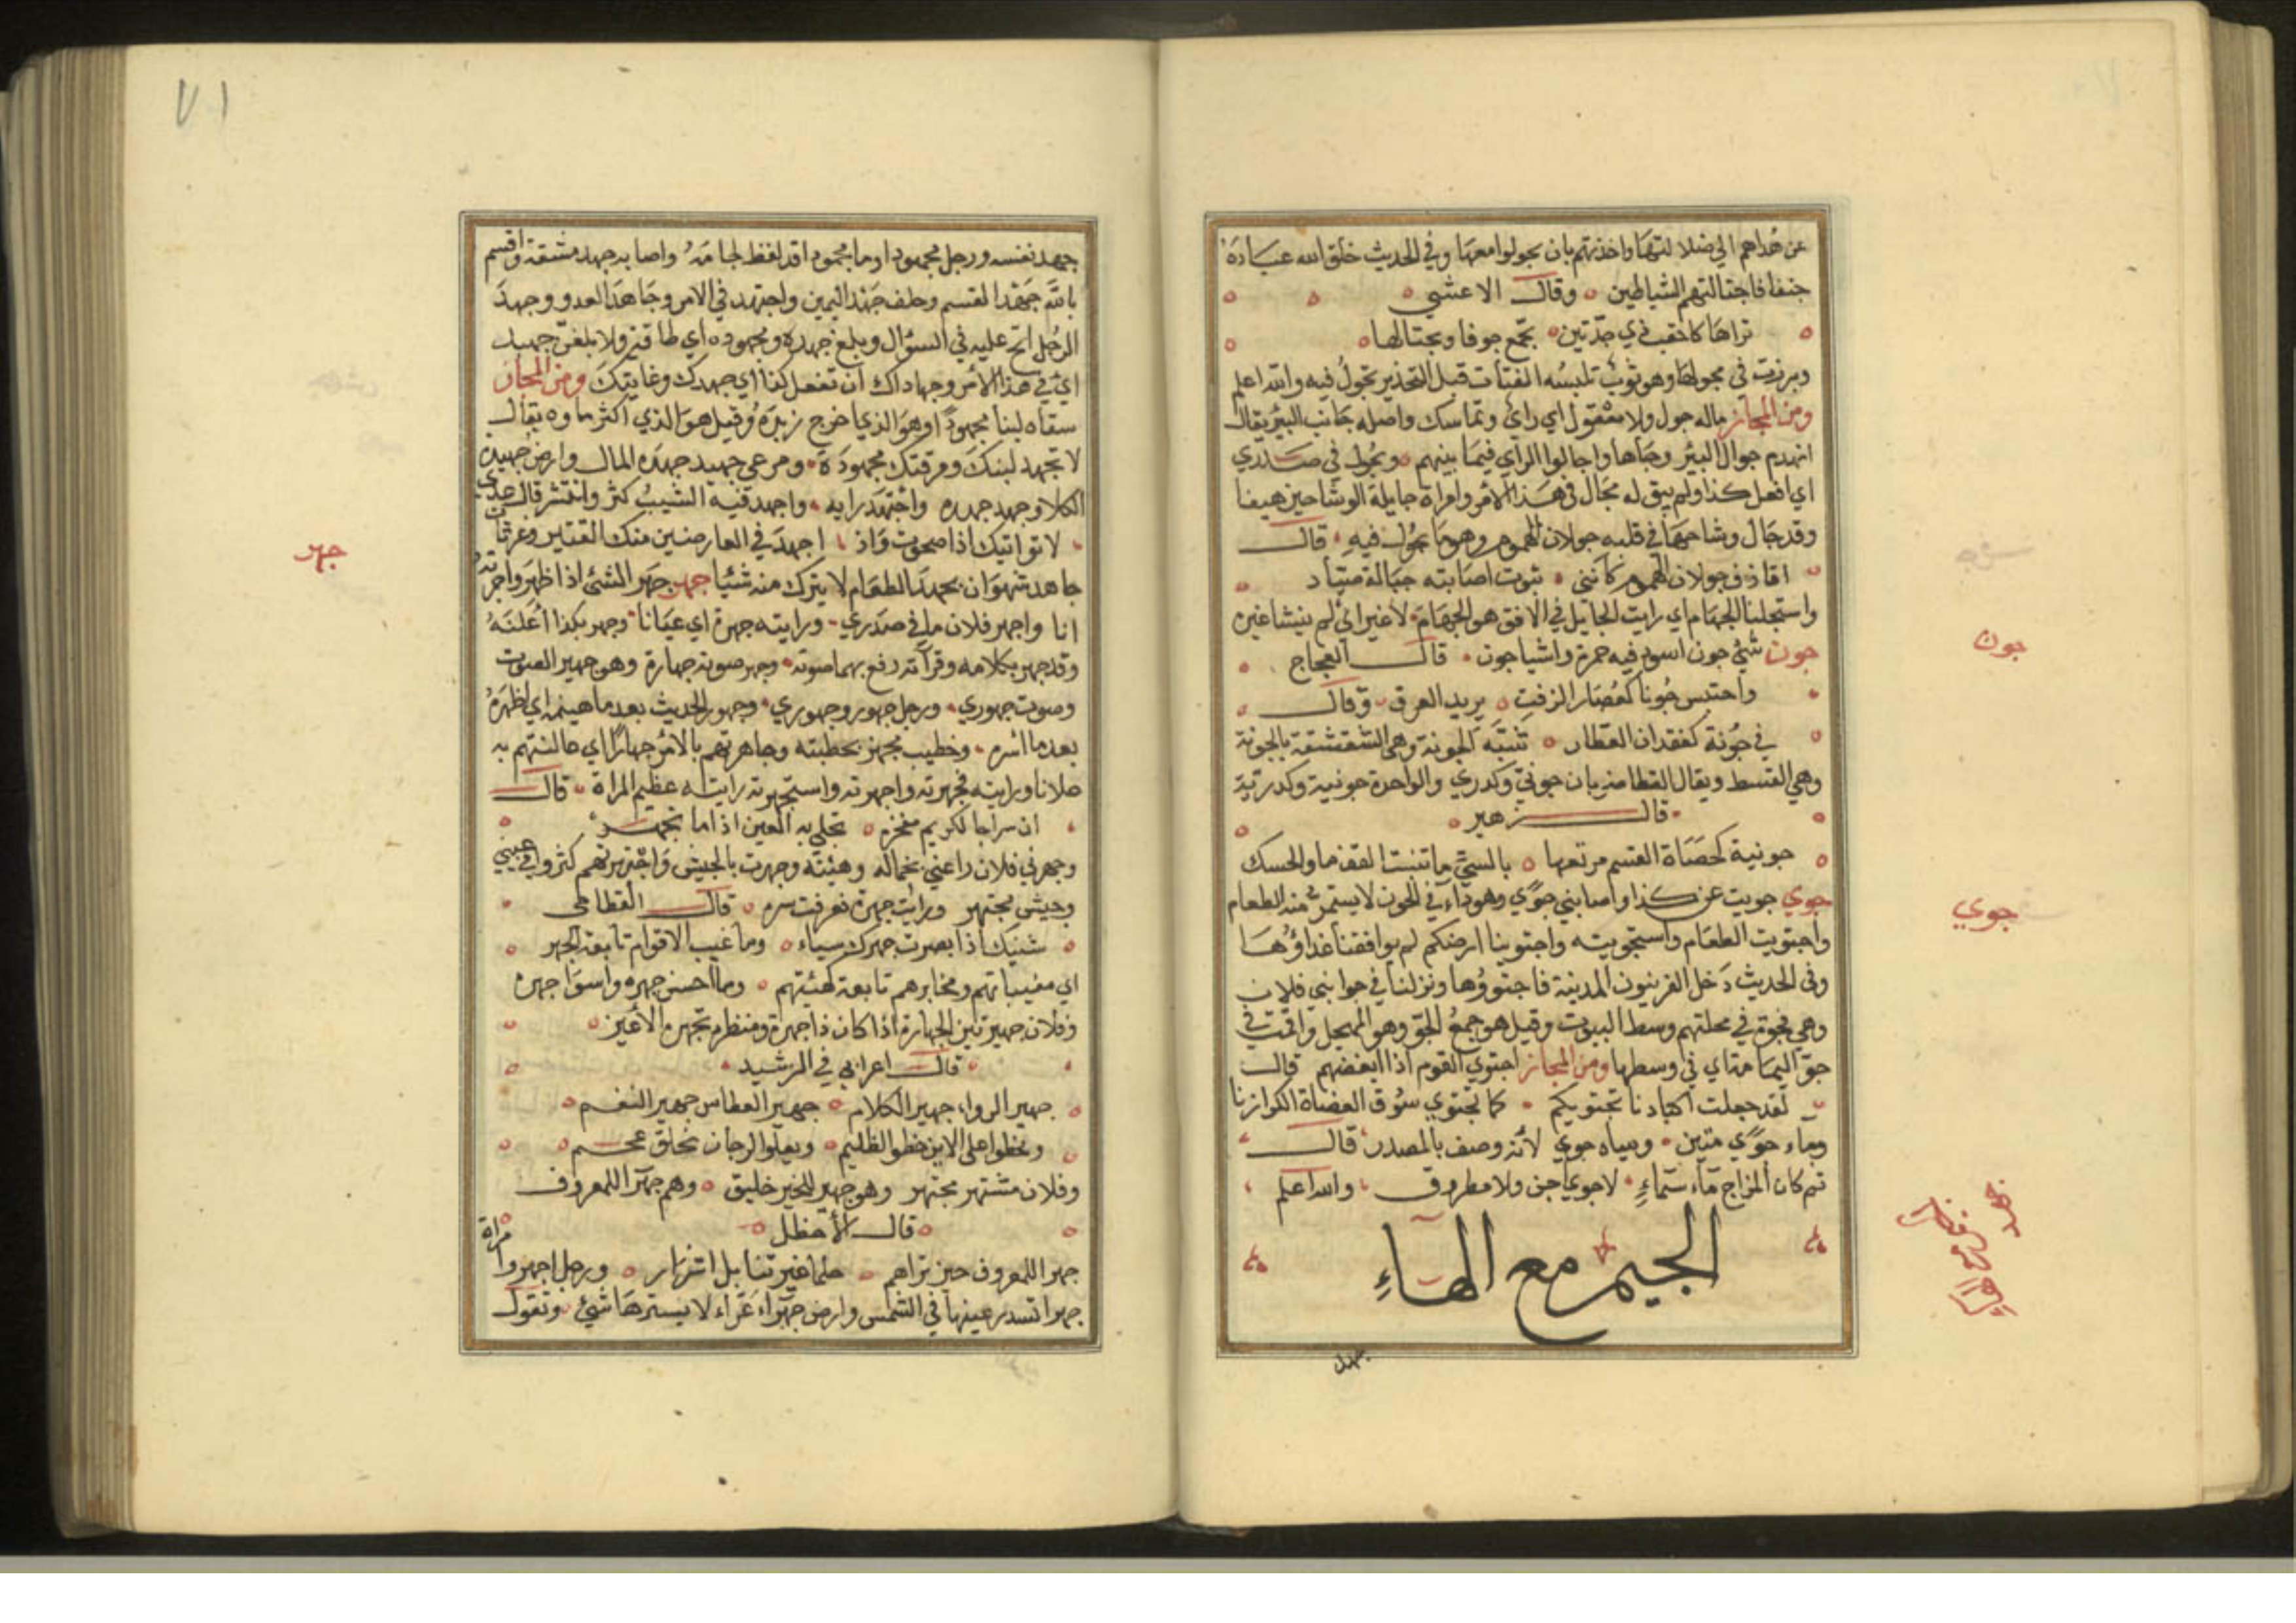 عن هداهم الي ضلالتها واخذتهم بان يجولوا معها وفي الحديث خلق الله عباده
حنفا فاجتالتهم الشياطين وقال الاعشي
تراها كاحقب ذي جدتين تجمع جوفا ويجتالها
وبرزت في مجولها وهو ثوب تلبسه الفتات قبل التخدير تجول فيه والله اعلم
ومن المجاز ماله جول ولا معقول اي راي وتماسك واصله جانب البير يقال
انهدم جوال البئر وجاها واجالوا الراي فيما بينهم ويجول في صدري
اي افعل كذا ولم يبق له مجال في هذا الامر وامراة جايلة الوشاحين هيفا
وقد جال وشاحها في قلبه جولان الهموم وهو ما يجول فيه قال
في جولان الهموم كانني اصابته حبالة
واستجلنا الجهام اي رايت الجايل في الافق هو الجهام لا غير اي لم ينشا غيره
جون شئ جون اسود فيه حمرة واشيا جون قال العجاج
واحتبس جونا كعصار الزفت يريد العرق وقال
في جونة كفقدان العطار الجونة وهي الشقشقة بالجونة
وهي القسط ويقال القطا ضربان جوني وكدري والواحدة جونية وكدرية
قال زهير
جونية كحصاة القسم مرتعها بالسي ما تنبت القفعا والحسك
جوي جويت عن كذا واصابني جوي وهو داء في الجوف لا يستمرئ منه الطعام
واجتويت الطعام واستجويته واجتوينا ارضكم لم يوافقنا غذاؤها
وفي الحديث دخل العرنيون المدينة فاجتووها ونزلنا في جوا بني فلان
وهي فجوة في محلتهم وسط البيوت وقيل هو جمع الجو وهو واقمت في
جو اليمامة اي في وسطها ومن المجاز اجتوي القوم اذا ابغضهم قال
لقد جعلت اكبادنا تجتويكم كما تجتوي سوق العضاة الكرازنا
وماء جوي منتن ومياه جوي لأنه وصف بالمصدر قال
ثم كان المزاج ماء سماء لا جو اجن ولا مطروق والله اعلم
الجيم مع الهاء
جهد
جون
جوي
جهد
٧١
جهد نفسه ورجل مجهود او ما مجهود اقد لفظ لجامه واصابه جهد مشقة واقسم
بالله جهد القسم وحلف جهد اليمين واجتهد في الامر وجاهد العدو وجهد
الرجل الح عليه في السؤال وبلغ جهده ومجهوده اي طاقته ولا بلغن جهيد
اي في هذا الامر وجهاداك ان تفعل كذا اي جهدك وغايتك ومن المجاز
سقاه لبنا مجهودا وهو الذي اخرج زبده وقيل هو الذي اكثر ماوه يقال
لا تجهد لبنك ومرقتك مجهودة ومرعي جهيد جهده المال وارض جهيدة
الكلا وجهد جهده واجتهد رايه واجهد فيه الشيب كثر وانتشر قال عدي
لا تواتيك اذا صحوت واذ اجهد في العارضين منك القتير وغرثان
جاهد شهوان يجهد الطعام لا يترك منه شئيا جهر جهر الشئ اذا ظهر واجهرته
انا واجهر فلان ما في صدري ورايته جهرة اي عيانا وجهر بكذا اعلنه
وقد جهر بكلامه وقرآته رفع بهما صوته وجهر صوته جهارة وهو جهير الصوت
وصوت جهوري ورجل جهور وجهوري وجهور الحديث بعد ما هينمه اي اظهره
بعد ما اسره وخطيب مجهر بخطبته وجاهرتهم بالامر جهارا اي عالنتهم به
علانا ورايته فجهرته واجهرته واستجهرته رايته عظيم المراة قال
ان سراجا لكريم مفخره تحلي به العين اذا ما تجهره
وجهرني فلان راعني بجماله وهيئته وجهرت بالجيش واجتهرتهم كثروا في عيني
وجيش مجتهر ورايت جهره فعرفت سره قال القطامي
شنيك اذ ابصرت جهرك سياء وما غيب الاقوام تابعة الجهر
اي مغيباتهم ومخابرهم تابعة لهئيتهم وما احسن جهره واسوا جهره
وفلان جهير بين الجهارة اذا كان ذا جهرة ومنظر تجهره الأعين
قال اعرابي في الرشيد
جهير الروا، جهير الكلام جهير العطاس جهير النغم
ويخطوا على الاين خطو الظليم ويعلوا الرجال بخلق عمم
وفلان مشتهر مجتهر وهو جهير للخير خليق وهم جهرآ للمعروف
قال الأخطل
جهرا للمعروف حين تراهم حلما غير تنابل اشرار ورجل اجهر وامراة
جهرا تسدر عينها في الشمس وارض جهراء غراء لا يسترها شئ وتقول
جهر